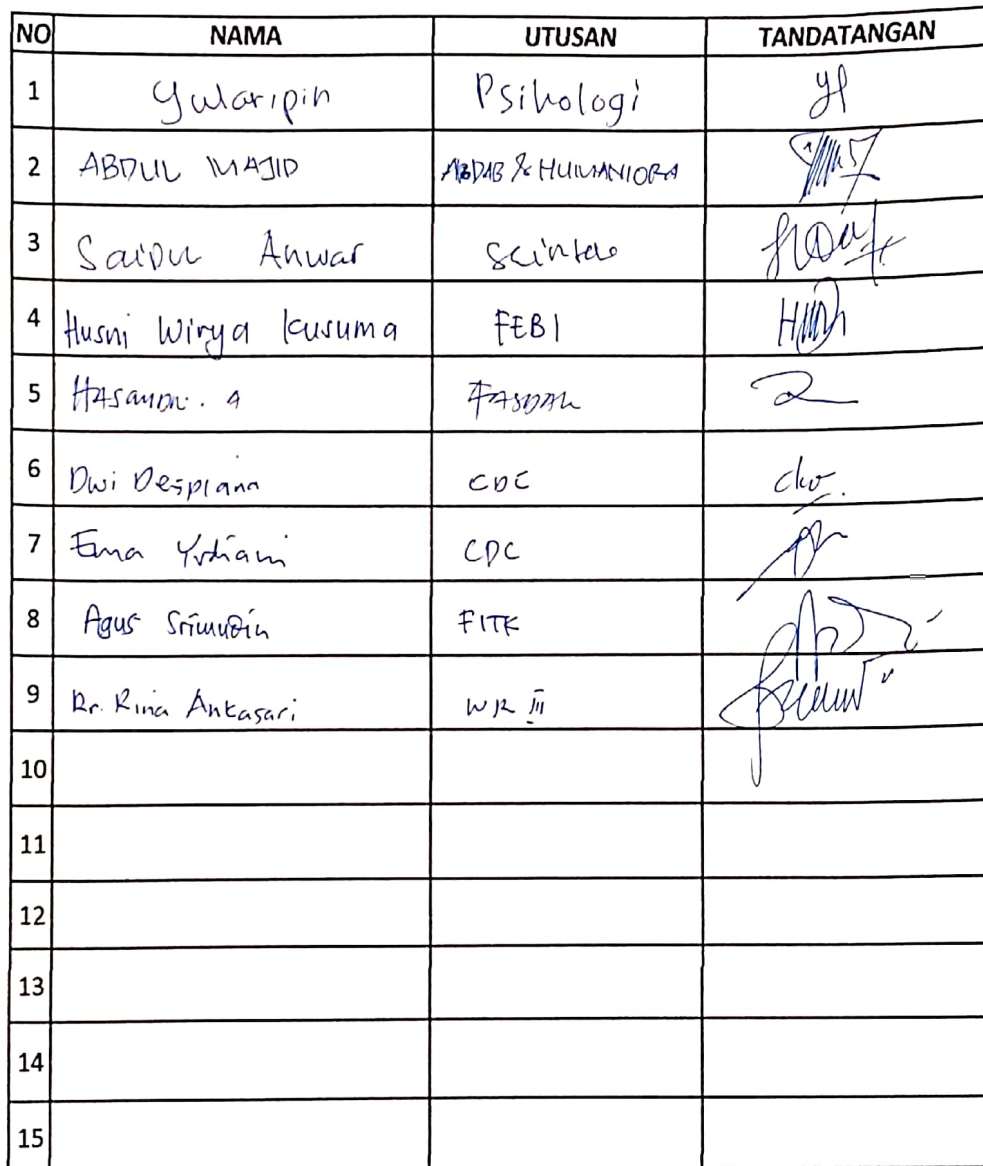 NO NAMA UTUSAN TANDATANGAN
1 Yularipin Psikologi
2 ABDUL MAJID ABDAB & HUMANIORA
3 Saipul Anwar
4 Husni Wirya Kusuma FEBI
5
6 Dwi Despiana CDC
7 Ema Yudiani CDC
8 Agus Srimudin FITK
9 Dr. Rina Antasari WR III
10
11
12
13
14
15